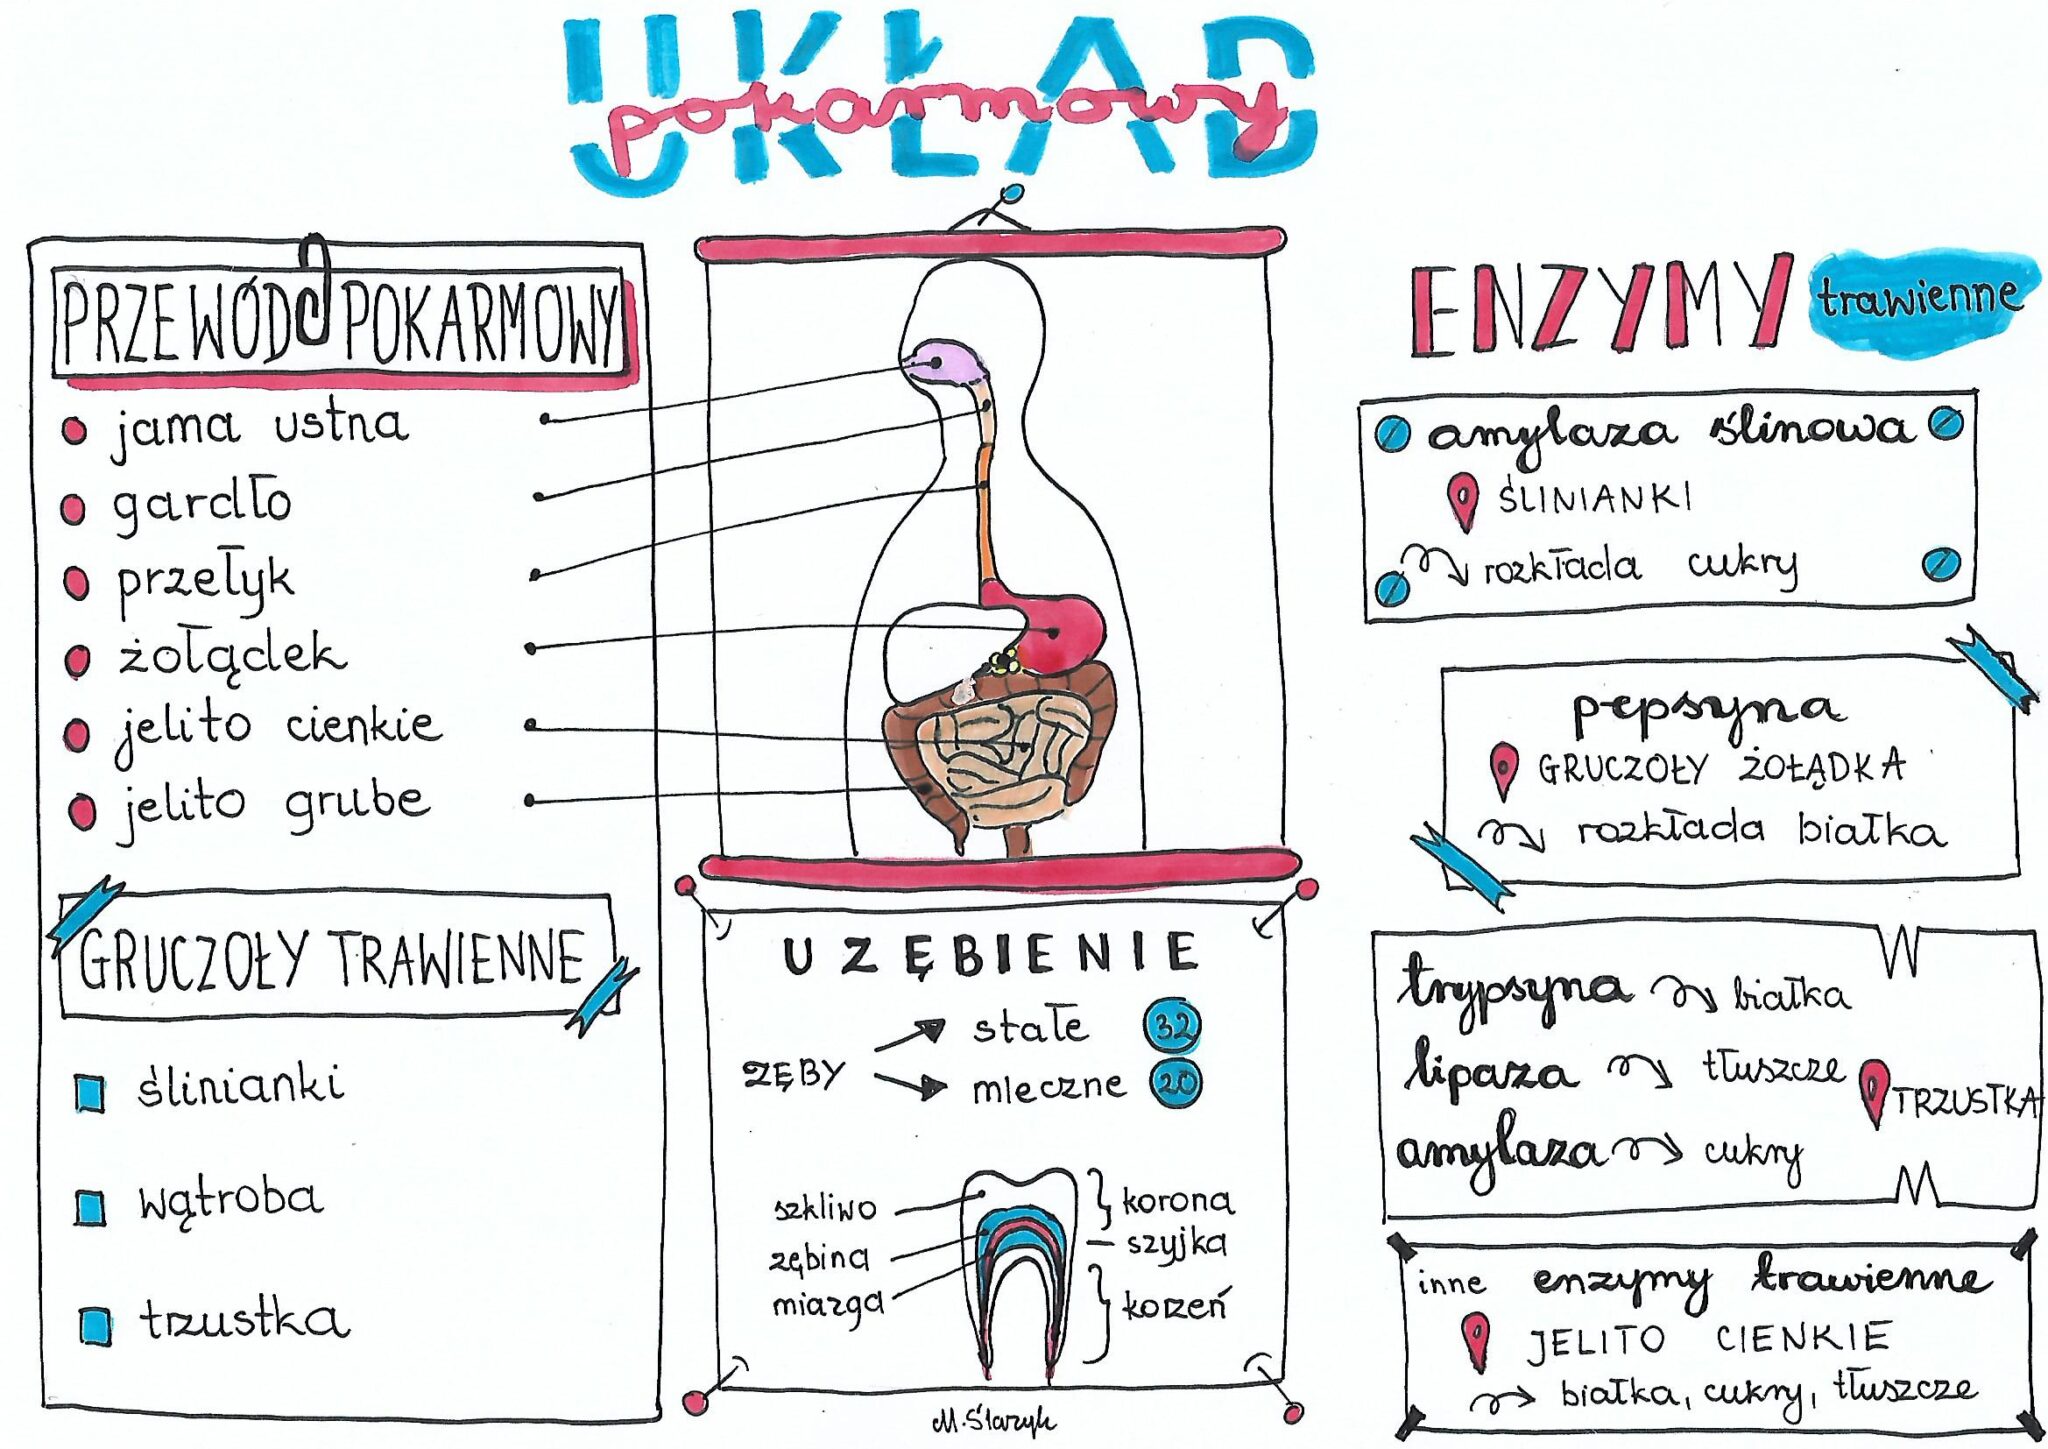 UKŁAD
pokarmowy
PRZEWÓD POKARMOWY
jama ustna
gardło
przełyk
żołądek
jelito cienkie
jelito grube
GRUCZOŁY TRAWIENNE
ślinianki
wątroba
trzustka
UZĘBIENIE
ZĘBY
stałe 32
mleczne 20
szkliwo
zębina
miazga
korona
szyjka
korzeń
M. Ślarzyk
ENZYMY trawienne
amylaza ślinowa
ŚLINIANKI
rozkłada cukry
pepsyna
GRUCZOŁY ŻOŁĄDKA
rozkłada białka
trypsyna białka
lipaza tłuszcze
TRZUSTKA
amylaza cukry
inne enzymy trawienne
JELITO CIENKIE
białka, cukry, tłuszcze